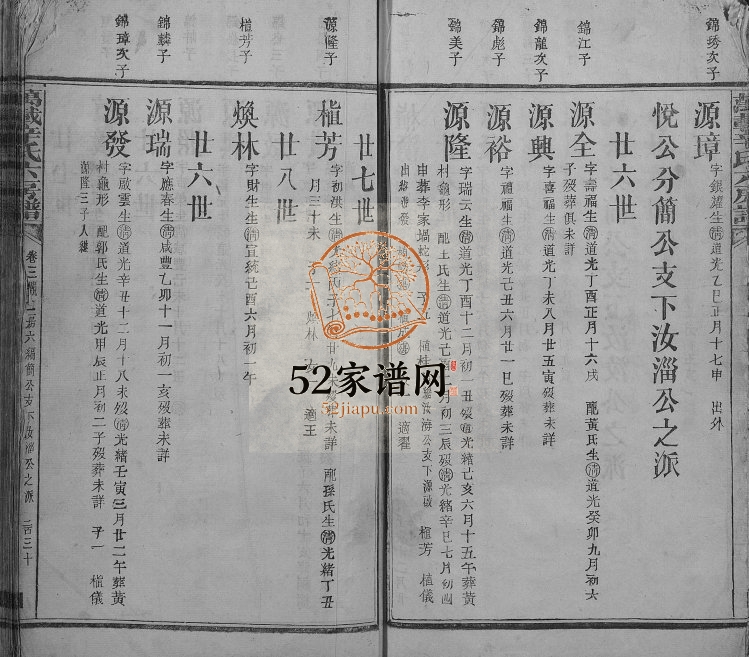 錦琇次子
源璋
字銀鍾生㊥道光乙巳正月十七申 出外
悅公分簡公支下汝淄公之派
廿六世
錦江子
源全
字壽福生㊥道光丁酉正月十六戌 配黃氏生㊥道光癸卯九月初六
子歿葬俱未詳
錦龍次子
源興
字喜福生㊥道光丁未八月廿五寅歿葬未詳
錦彪子
源裕
字禮福生㊥道光己丑六月廿一巳歿葬未詳
錦美子
源隆
字瑞云生㊥道光丁酉十二月初一丑歿㊥光緒己亥六月十五午葬黃
村龜形 配王氏生㊥道光己 月初三辰歿㊥光緒辛巳七月初四
申葬李家塌 子 植桂 汝淄公支下源啟 植芳 植儀
出紹源發 適羅
廿七世
源隆子
植芳
字初洪生㊥ 配孫氏生㊥光緒丁丑
月三十未 煥林 適王
廿八世
植芳子
煥林
字財生生㊥宣統己酉六月初一午
廿六世
錦麟子
源瑞
字應春生㊥咸豐乙卯十一月初一亥歿葬未詳
錦璋次子
源發
字啟雲生㊥道光辛丑十二月十八未歿㊥光緒壬寅三月廿二午葬黃
村龜形 配郭氏生㊥道光甲辰正月初二子歿葬未詳 子一 植儀
源隆三子入繼
萬載辛氏六房譜
卷三 簡公支下汝淄公之派 二百三十
52家谱网
52jiapu.com